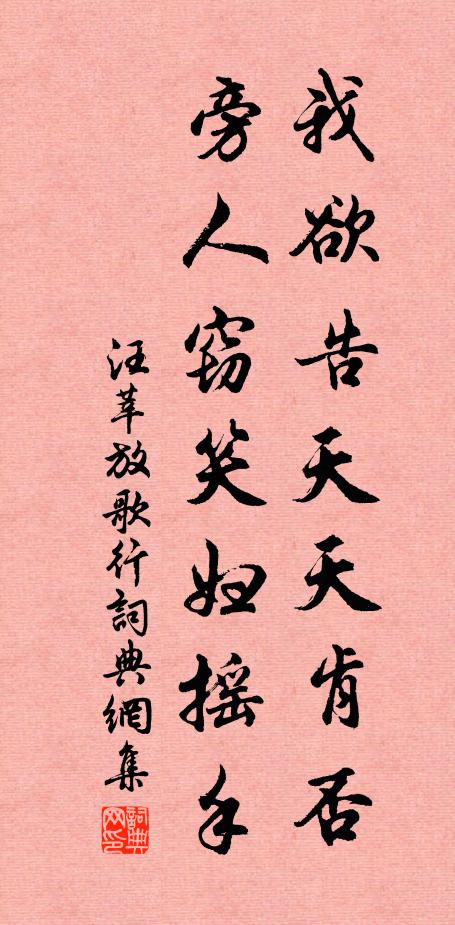 我欲告天天肯否
旁人窃笑妇摇手
汪莘放歌行詞典網集
詞典网印